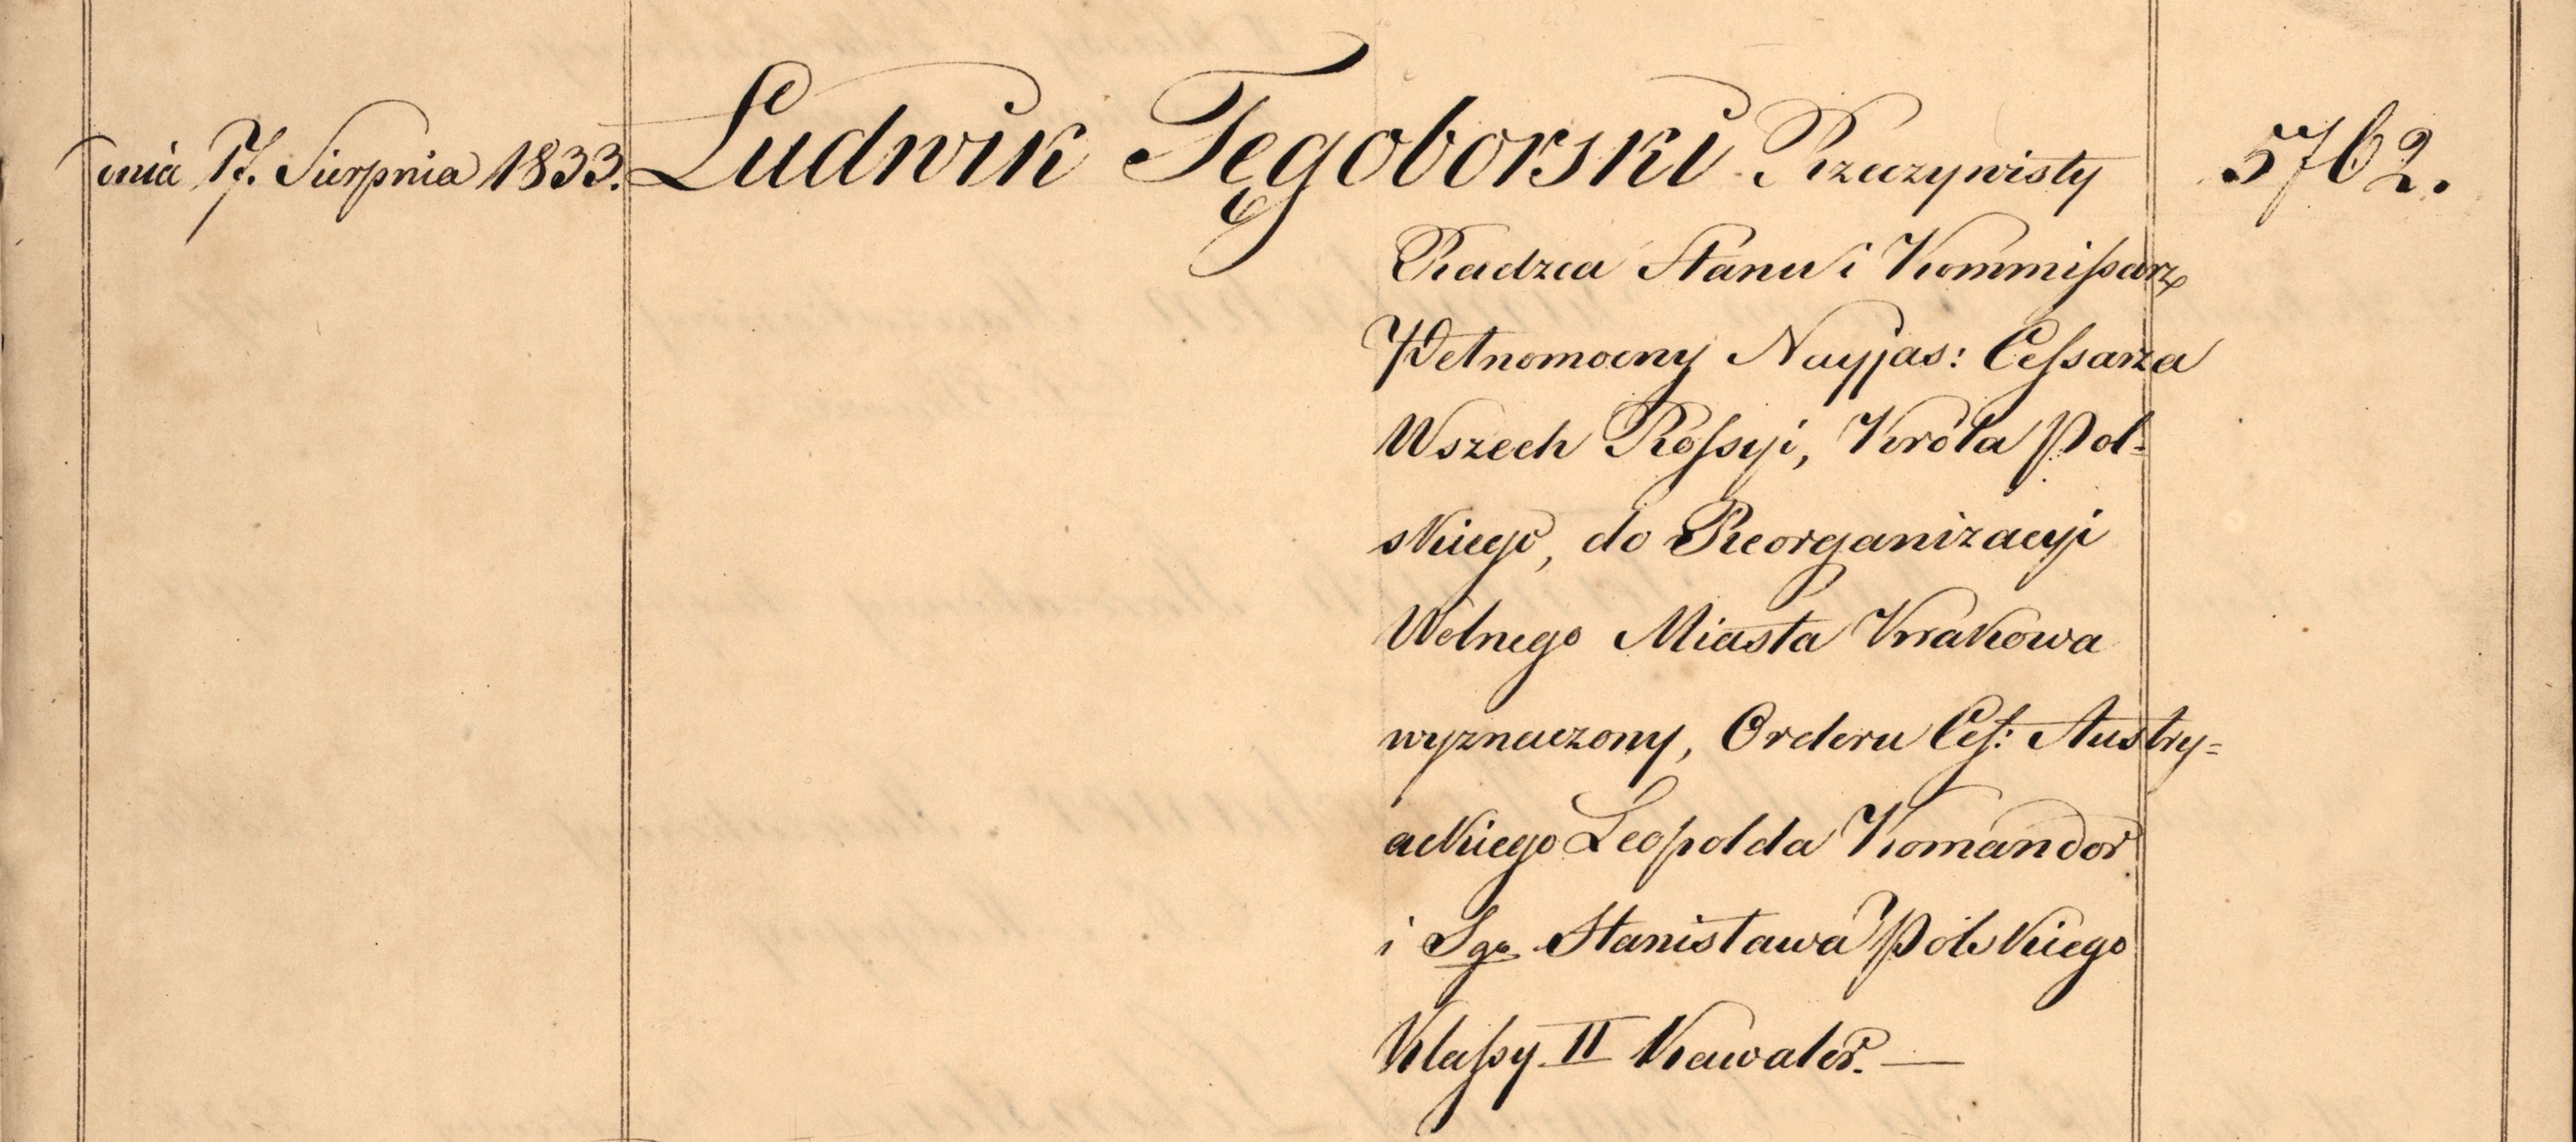 dnia 17. Sierpnia 1833. Ludwik Tęgoborski Rzeczywisty 5762.
Radzca Stanu i Kommissarz
Pełnomocny Nayjas: Cessarza
Wszech Rossyi, Króla Pol-
skiego, do Reorganizacyi
Wolnego Miasta Krakowa
wyznaczony, Orderu Ces: Austry=
ackiego Leopolda Komandor
i Sgo Stanisława Polskiego
Klassy II Kawaler. —